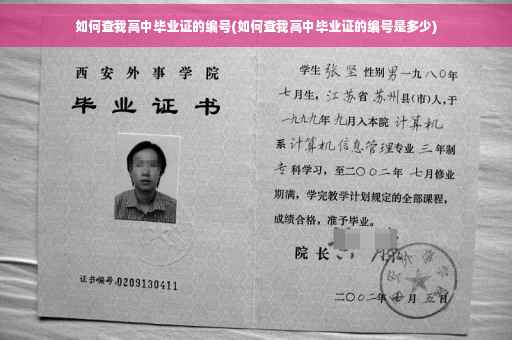 如何查我高中毕业证的编号(如何查我高中毕业证的编号是多少)
西安外事学院
毕业证书
证书编号:0209130411
学生张坚性别男一九八〇年
七月生，江苏省苏州县(市)人,于
一九九九年九月入本院计算机
系计算机信息管理专业三年制
专科学习，至二〇〇二年七月修业
期满，学完教学计划规定的全部课程，
成绩合格，准予毕业。
院长
二〇〇二年 月五日